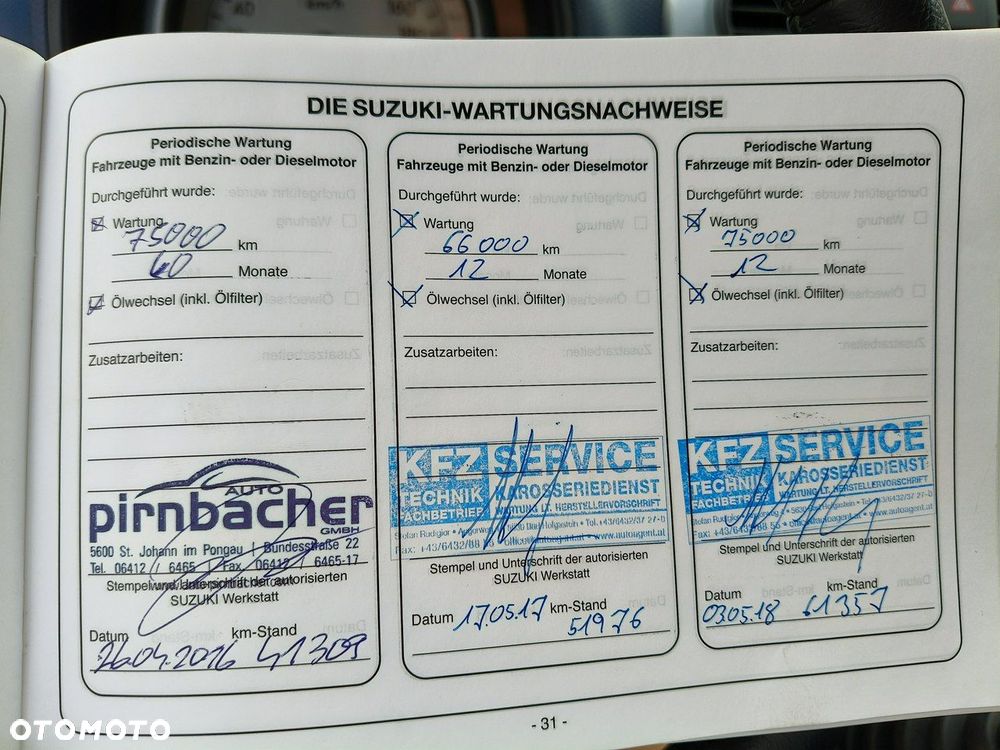 DIE SUZUKI-WARTUNGSNACHWEISE
Periodische Wartung
Fahrzeuge mit Benzin- oder Dieselmotor
Durchgeführt wurde:
Wartung
75000 km
60 Monate
Ölwechsel (inkl. Ölfilter)
Zusatzarbeiten:
AUTO
pirnbacher
GMBH
5600 St. Johann im Pongau | Bundesstraße 22
Tel. 06412 / 6465 | Fax. 06412 / 6465-17
Stempel und Unterschrift der autorisierten
SUZUKI Werkstatt
Datum km-Stand
26.04.2016 41309
Periodische Wartung
Fahrzeuge mit Benzin- oder Dieselmotor
Durchgeführt wurde:
Wartung
66000 km
12 Monate
Ölwechsel (inkl. Ölfilter)
Zusatzarbeiten:
KFZ SERVICE
TECHNIK KAROSSERIEDIENST
FACHBETRIEB WARTUNG LT. HERSTELLERVORSCHRIFT
Stefan Rudigier • Tel. +43/6432/37 27-0
Fax: +43/6432/88 56 • office@autoagent.at • www.autoagent.at
Stempel und Unterschrift der autorisierten
SUZUKI Werkstatt
Datum 17.05.17 km-Stand
51976
Periodische Wartung
Fahrzeuge mit Benzin- oder Dieselmotor
Durchgeführt wurde:
Wartung
75000 km
12 Monate
Ölwechsel (inkl. Ölfilter)
Zusatzarbeiten:
KFZ SERVICE
TECHNIK KAROSSERIEDIENST
FACHBETRIEB WARTUNG LT. HERSTELLERVORSCHRIFT
Stefan Rudigier • Tel. +43/6432/37 27-0
Fax: +43/6432/88 56 • www.autoagent.at
Stempel und Unterschrift der autorisierten
SUZUKI Werkstatt
Datum km-Stand
03.05.18 61357
- 31 -
OTOMOTO